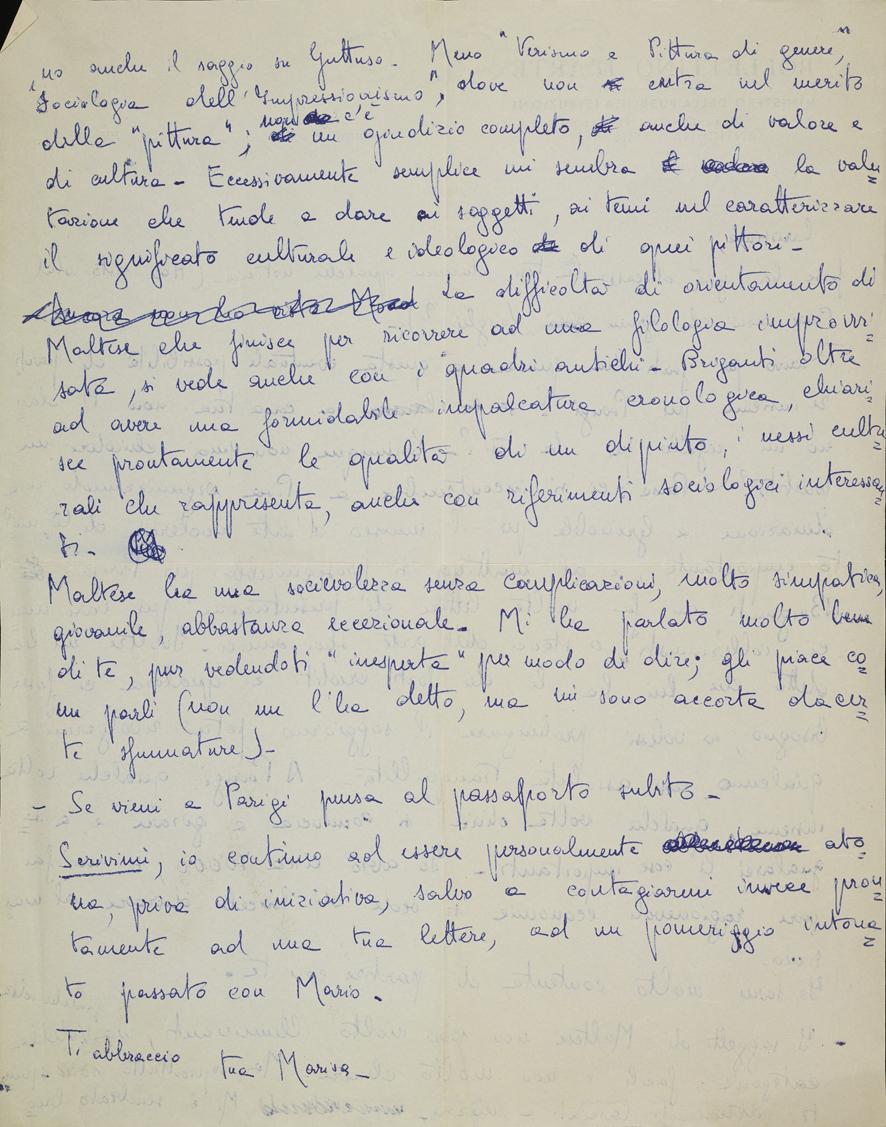 no anche il saggio su Guttuso - Meno "Verismo e Pittura di genere",
"Sociologia dell'Impressionismo", dove non entra nel merito
della "pittura"; non c'è un giudizio completo, anche di valore e
di cultura - Eccessivamente semplice mi sembra la valu
tazione che tende a dare ai soggetti, ai temi nel caratterizzare
il significato culturale e ideologico di quei pittori -
La difficoltà di orientamento di
Maltese che finisce per ricorrere ad una filologia improvvi=
sata, si vede anche con i quadri antichi - Briganti oltre
ad avere una formidabile impalcatura cronologica, chiari=
sce prontamente le qualità di un dipinto, i nessi cultu=
rali che rappresenta, anche con riferimenti sociologici interessan=
ti -
Maltese ha una socievolezza senza complicazioni, molto simpatica,
giovanile, abbastanza eccezionale - Mi ha parlato molto bene
di te, pur vedendoti "inesperta" per modo di dire; gli piace co=
me parli (non me l'ha detto, ma mi sono accorta da cer=
te sfumature) -
- Se vieni a Parigi pensa al passaporto subito -
Scrivimi, io continuo ad essere personalmente ato=
na, priva di iniziativa, salvo a contagiarmi invece pron=
tamente ad una tua lettere, ad un pomeriggio intona=
to passato con Mario -
Ti abbraccio
tua Marisa -